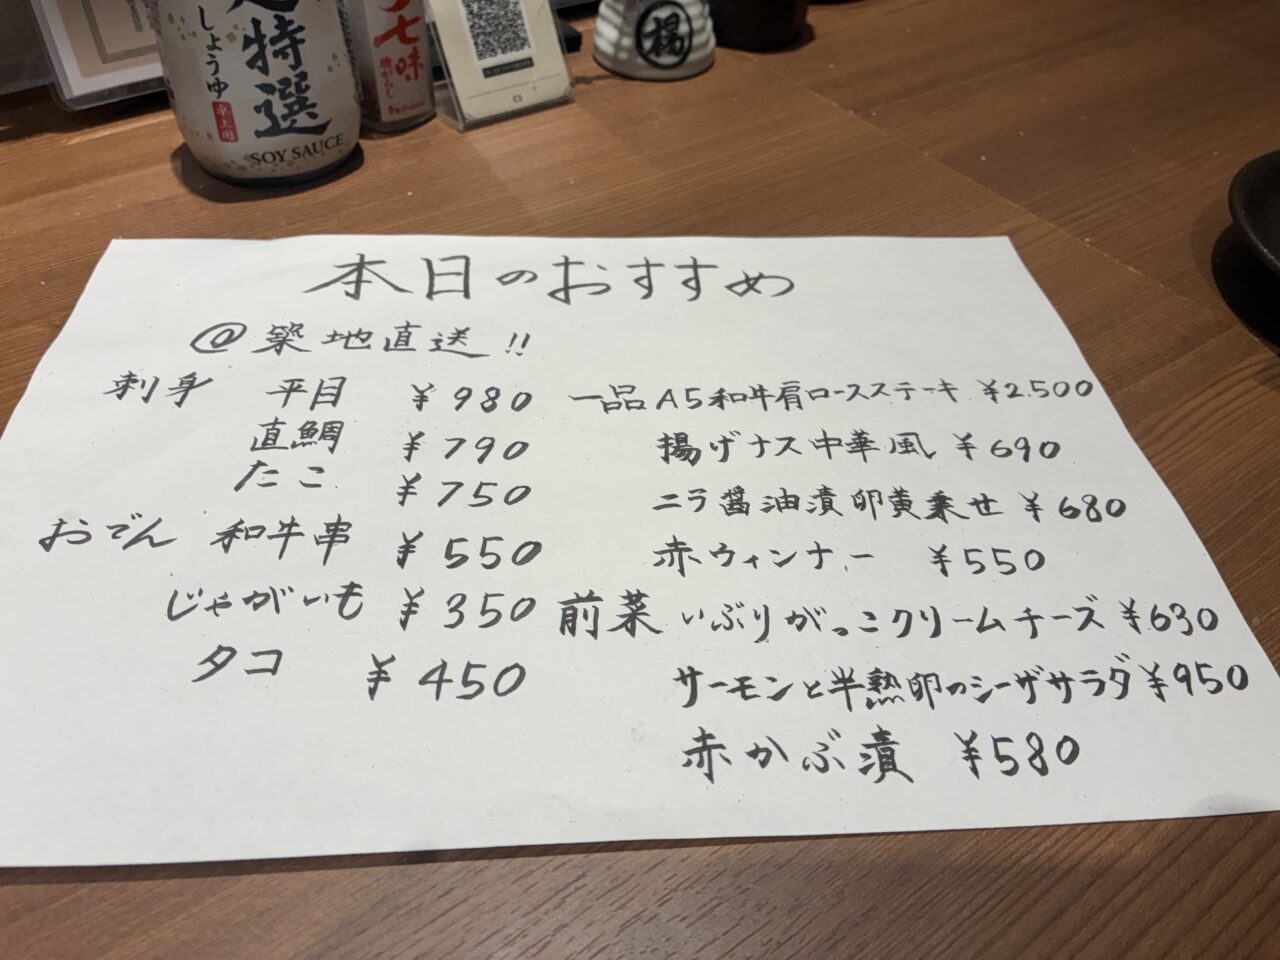 特選
しょうゆ
卓上用
SOY SAUCE
七味
唐がらし
揚
本日のおすすめ
@築地直送!!
刺身 平目 ¥980
直鯛 ¥790
たこ ¥750
おでん 和牛串 ¥550
じゃがいも ¥350
タコ ¥450
一品 A5和牛肩ロースステーキ ¥2.500
揚げナス中華風 ¥690
ニラ醤油漬卵黄乗せ ¥680
赤ウィンナー ¥550
前菜 いぶりがっこクリームチーズ ¥630
サーモンと半熟卵のシーザサラダ ¥950
赤かぶ漬 ¥580